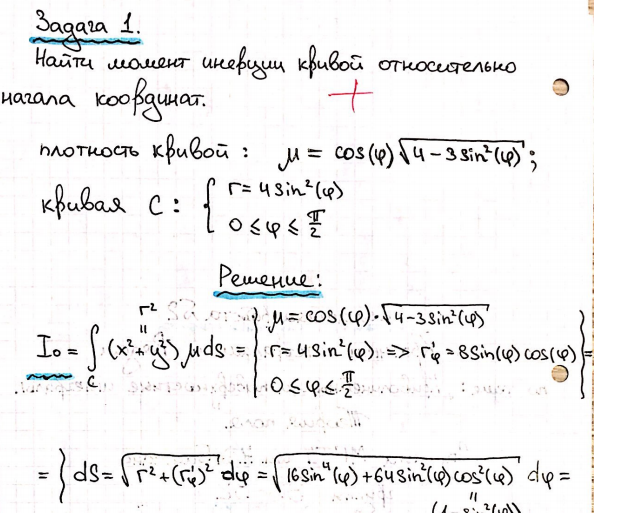 Задача 1.
Найти момент инерции кривой относительно
начала координат.
плотность кривой : μ = cos(φ)√(4 − 3sin²(φ)) ;
кривая C : { r = 4sin²(φ)
0 ≤ φ ≤ π/2
Решение:
r²
"
I₀ = ∫_C (x² + y²) μ ds = { μ = cos(φ)·√(4−3sin²(φ))
r = 4sin²(φ) => r'φ = 8sin(φ)cos(φ) } =
0 ≤ φ ≤ π/2
= { dS = √(r² + (r'φ)²) dφ = √(16sin⁴(φ) + 64sin²(φ)cos²(φ)) dφ =
"
(1−sin²(φ))